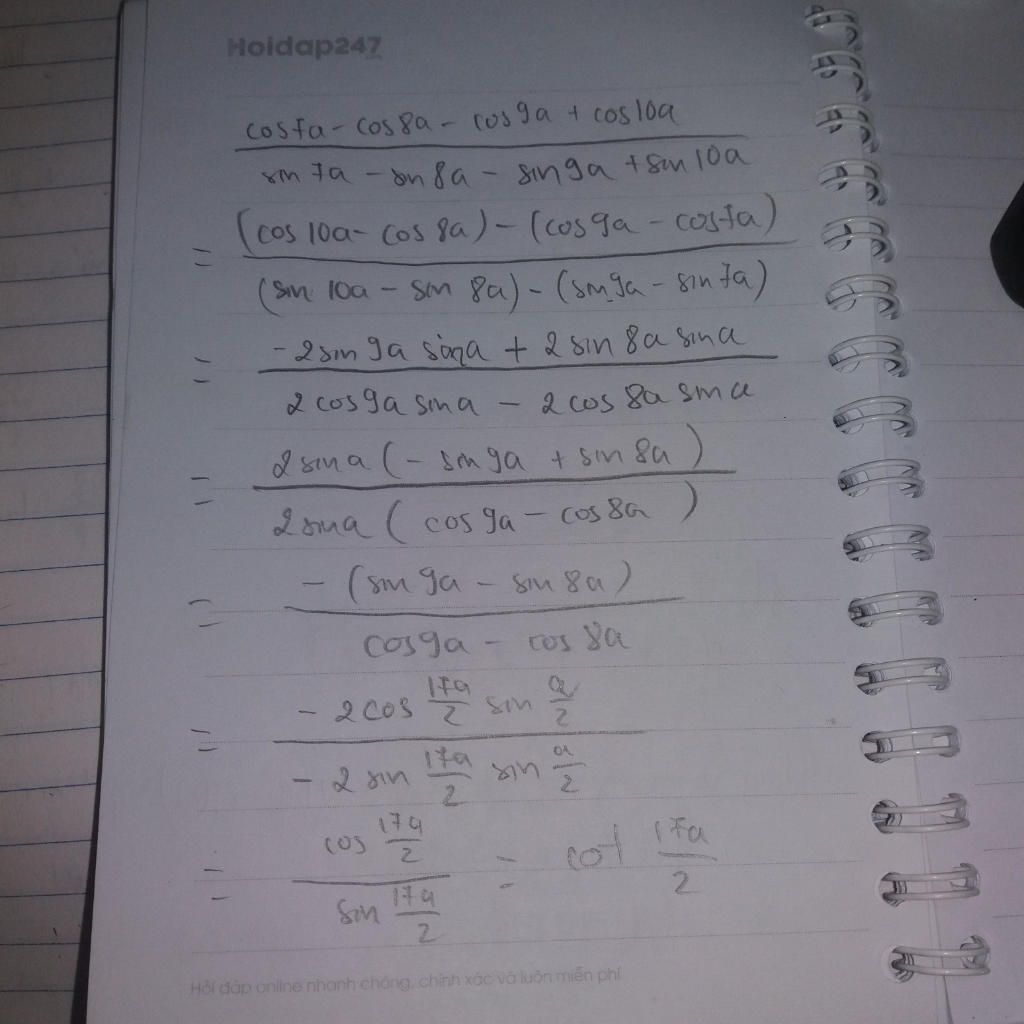 Hoidap247
cos7a - cos8a - cos9a + cos10a
sin7a - sin8a - sin9a + sin10a
= (cos10a - cos8a) - (cos9a - cos7a)
(sin10a - sin8a) - (sin9a - sin7a)
= -2sin9a sina + 2sin8a sina
2cos9a sina - 2cos8a sina
= 2sina (-sin9a + sin8a)
2sina (cos9a - cos8a)
= -(sin9a - sin8a)
cos9a - cos8a
= -2cos 17a/2 sin a/2
-2sin 17a/2 sin a/2
= cos 17a/2 = cot 17a/2
sin 17a/2
Hỏi đáp online nhanh chóng, chính xác và luôn miễn phí